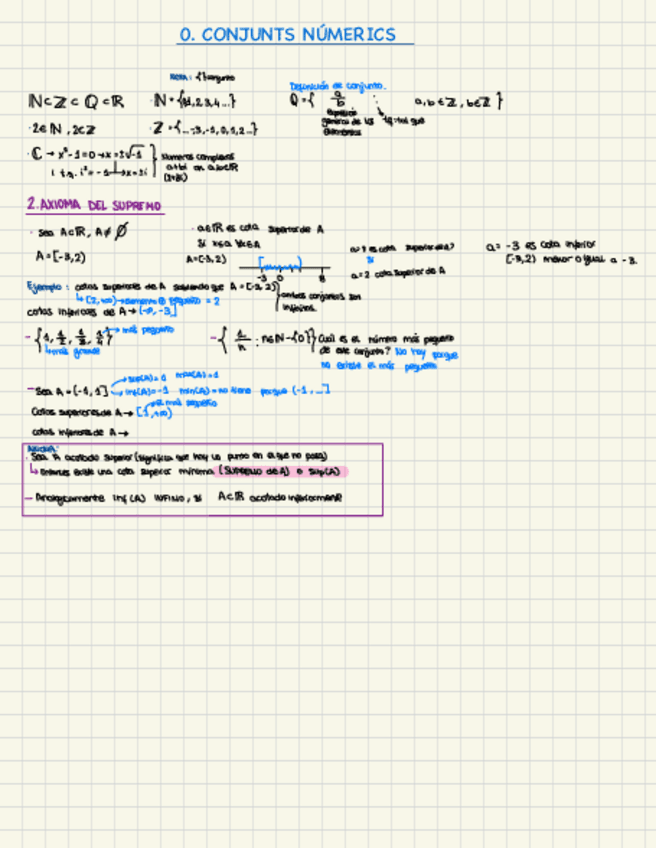 0. CONJUNTS NÚMERICS
Nota: {} conjunto
Definición de conjunto.
ℕ⊂ℤ⊂ℚ⊂ℝ · ℕ={1,2,3,4...} ℚ={ a/b : a,b∈ℤ, b∈ℤ }
general de los tq = tal que
elementos
· 2∈ℕ, 2∈ℤ · ℤ={...-3,-1,0,1,2...}
· ℂ → x²-1=0→x=±√-1 Números complejos
a+bi on a,b∈ℝ
i t.q. i²=-1 x=±i
2. AXIOMA DEL SUPREMO
· Sea A⊂ℝ, A≠∅ · a∈ℝ es cota superior de A
si x≤a ∀x∈A
A=[-3,2) A=[-3,2)
-3 0
si
a=2 cota superior de A
a=-3 es cota inferior
[-3,2) menor o igual a -3.
Ejemplo: cotas superiores de A sabiendo que A=[-3,2)
[2,∞)→elemento pequeño = 2
ambos conjuntos son
infinitos.
cotas inferiores de A→(-∞,-3]
- {1, 1/2, 1/3, 1/4} → más pequeño
más grande
- { 1/n : n∈ℕ-{0}} Cuál es el número más pequeño
de este conjunto? No hay porque
no existe el más pequeño
- Sea A=(-1,1] sup(A)=1 max(A)=1
inf(A)=-1 min(A)=no tiene porque (-1,...]
el más pequeño
Cotas superiores de A→[1,+∞)
cotas inferiores de A→
Axioma:
· Sea A acotado superior (significa que hay un punto en el que no pasa)
↳ Entonces existe una cota superior mínima (SUPREMO de A) o sup(A)
- Analogicamente inf(A) INFIMO, si A⊂ℝ acotado inferiormente